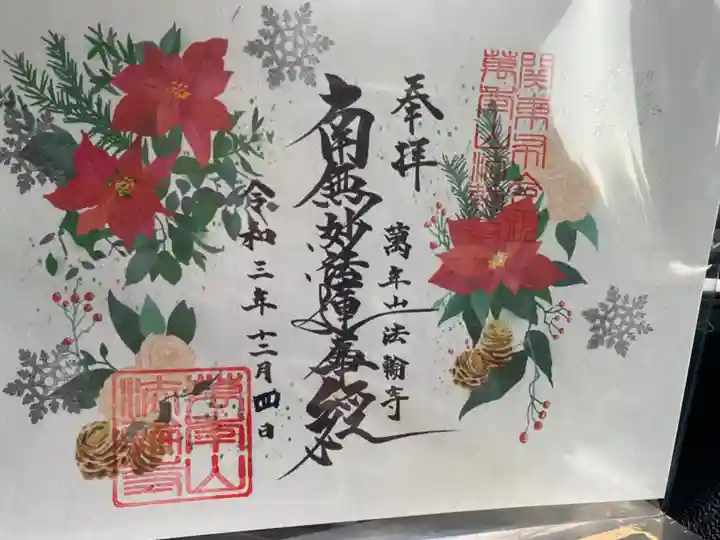 奉拝
萬年山法輪寺
南無妙法蓮華経
令和三年十二月四日
萬年山
法輪寺